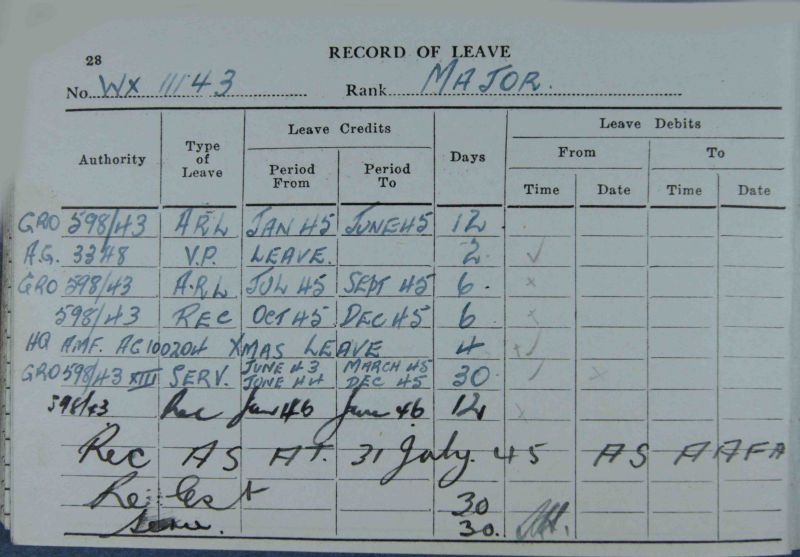 28
RECORD OF LEAVE
No. WX 11143 Rank MAJOR.
Leave Credits Leave Debits
Authority Type of Leave Period From Period To Days From To
Time Date Time Date
GRO 598/43 ARL JAN 45 JUNE 45 12
A.G. 3348 V.P. LEAVE. 2
GRO 598/43 A.R.L JUL 45 SEPT 45 6
598/43 REC OCT 45 DEC 45 6
HQ AMF. AG 100204 XMAS LEAVE 4
GRO 598/43 XIII SERV. JUNE 43 MARCH 45 30
JUNE 44 DEC 45
598/43 Rec Jan 46 June 46 12
Rec AS AT. 31 July. 45 AS AAFA
30
30.